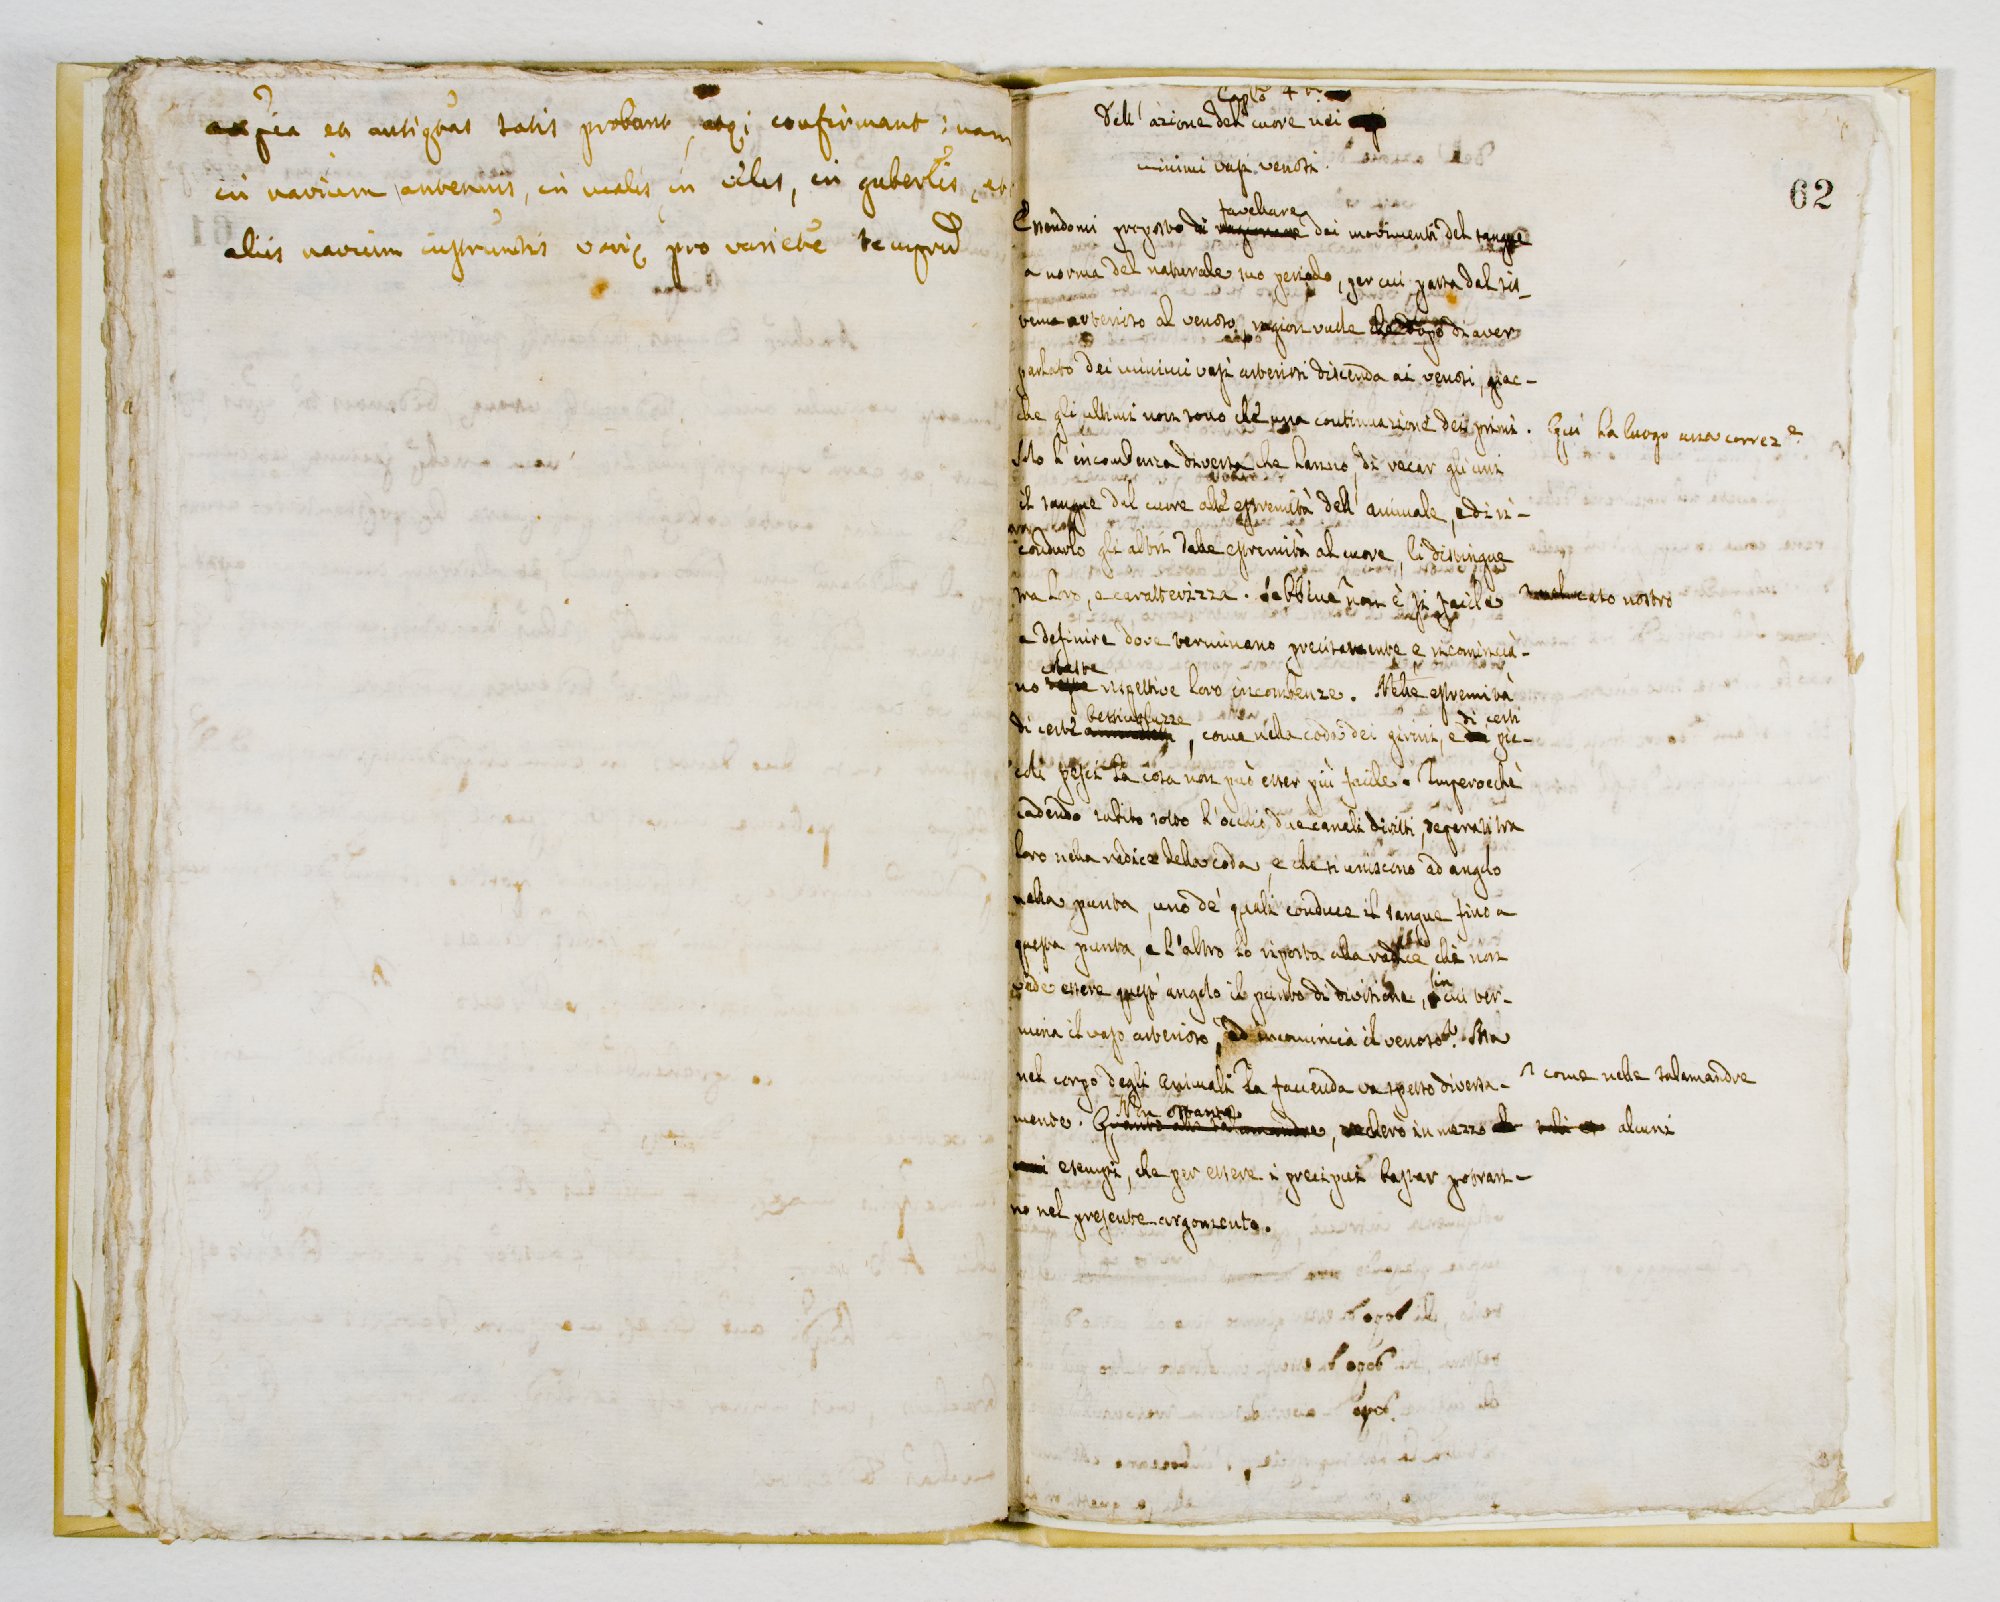 et antiquitas satis probant, confirmant: nam
in navium antennis, in malis, in velis, in
aliis navium pro varietate
Cap.lo 4.º
Dell' azione del cuore nei
minimi vasi venosi.
62
favellare
Essendomi proposto di ragionare dei movimenti del sangue
a norma del naturale suo periodo, per cui passa dal sis-
tema arterioso al venoso, ragion vuole che dopo di aver
parlato dei minimi vasi arteriosi discenda ai venosi, giac-
che gli ultimi non sono che una continuazione dei primi. Qui ha luogo una correz.e
Solo l'incombenza diversa che hanno di recar gli uni
il sangue dal cuore all' estremità dell' animale, e di ri-
condurlo gli altri dalle estremità al cuore, li distingue
tra loro, e caratterizza. Sebbene non è sì facile
nostro
a definire dove terminano precisamente e incomincia-
coteste
no queste rispettive loro incombenze. Nelle estremità
bestiuoluzze
di certi
di certe animaletti, come nella coda dei girini, e pic-
coli pesci la cosa non può esser più facile. Imperocchè
cadendo subito sotto l'occhio due canali diritti, separati tra
loro nella radice della coda, e che si uniscono ad angolo
nella punta, uno de' quali conduce il sangue fino a
questa punta, e l'altro lo riporta alla radice chi non
vede essere quest' angolo il punto di divisione, in cui ter-
mina il vaso arterioso, ed incomincia il venoso? Ma
nel corpo degli animali la faccenda va spesso diversa-
come nelle salamandre
mente. Quanto alle salamandre, recherò in mezzo alcuni
Non ostante
esempi, che per essere i precipui bastar potran-
no nel presente argomento.